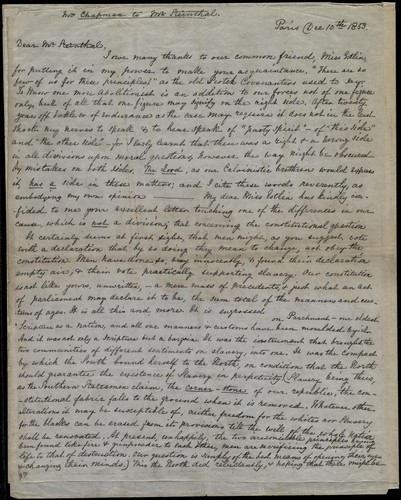 Mrs Chapman to Mr Pienthal.
Paris Dec 10th 1853.
Dear Mr Pienthal,
I owe many thanks to our common friend, Miss Estlin,
for putting it in my power to make your acquaintance. "There are so
few of us for these principles" as the old Scotch Covenanters used to say.
To know one more Abolitionist is an addition to our forces not of one figure
only but of all that one figure may signify on the right side. After twenty
years of battle or of endurance as the case may require it does not in the least
shock my nerves to speak & to hear speak of "party spirit" - of "this side"
and "the other side" - for I early learnt that there was a right & a wrong side
in all divisions upon moral questions however the way might be obscured
by mistakes on both sides. The Lord, as our Calvinistic brethren would express
it, has a side in these matters; and I cite these words reverently, as
embodying my own opinion — My dear Miss Estlin has kindly con-
fided to me your excellent letter touching one of the differences in our
cause, which is not a division; that concerning the constitutional question.
It certainly seems at first sight, that men might, as you suggest, vote
with a declaration that by so doing they mean to change, not obey the
constitution. Men have done so, very innocently, & found their declaration
empty air, & their vote practically supporting slavery. Our constitution
is not like yours, unwritten, - a mere mass of precedents, & just what an act
of parliament may declare it to be, the sum total of the manners and cus-
toms of ages. It is all this and more. It is engrossed on Parchment - our oldest
Scripture as a nation, and all our manners & customs have been moulded by it.
And it was not only a Scripture but a bargain. It was the instrument that brought the
two communities of different sentiments on slavery, into one. It was the compact
by which the South bound itself to the North, on condition that the North
should guarantee the existence of Slavery in perpetuity. Slavery being thus,
as the Southern Statesmen claim, the corner-stone of our republic, the con-
stitutional fabric falls to the ground when it is removed. Whatever other
alterations it may be susceptible of, neither freedom for the whites nor slavery
for the blacks can be erased from its provisions till the will of the whole nation
shall be renovated. At present, unhappily, the two irreconcilable principles having
been found, like fire & gunpowder to each other, men are sacrificing the principle of
life to that of destruction. Our question is simply of the best means of opening their eyes
& changing their minds.) This the North did reluctantly, & hoping that there might be